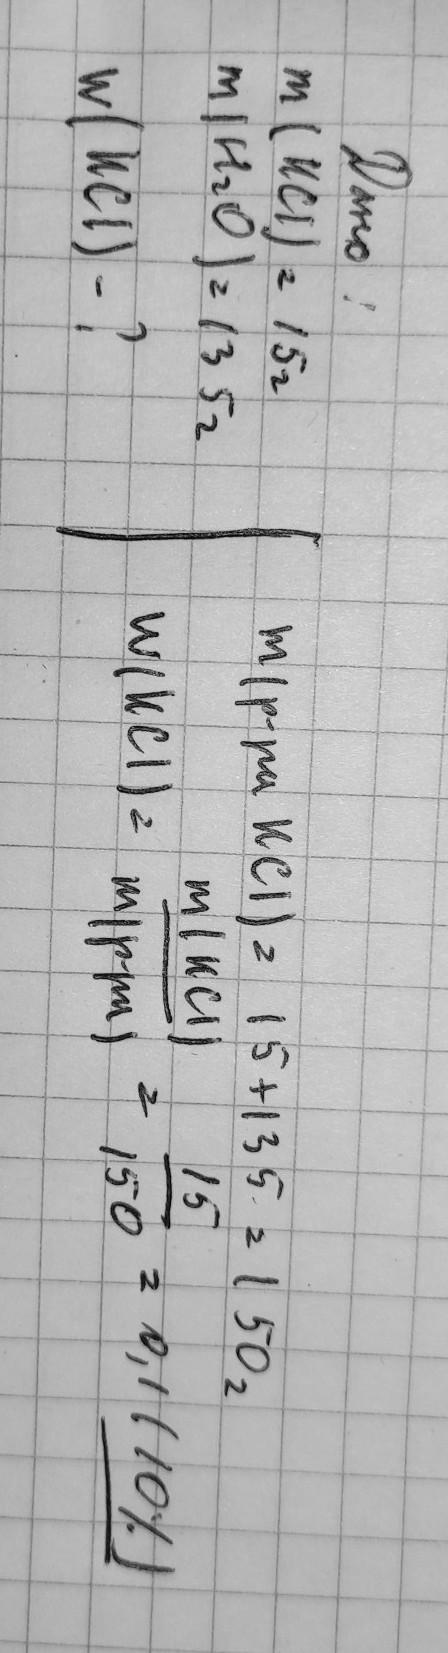 Дано:
m(KCl) = 15г
m(H₂O) = 135г
W(KCl) - ?
m(р-ра KCl) = 15+135 = 150г
W(KCl) = m(KCl) / m(р-ра) = 15 / 150 = 0,1 (10%)